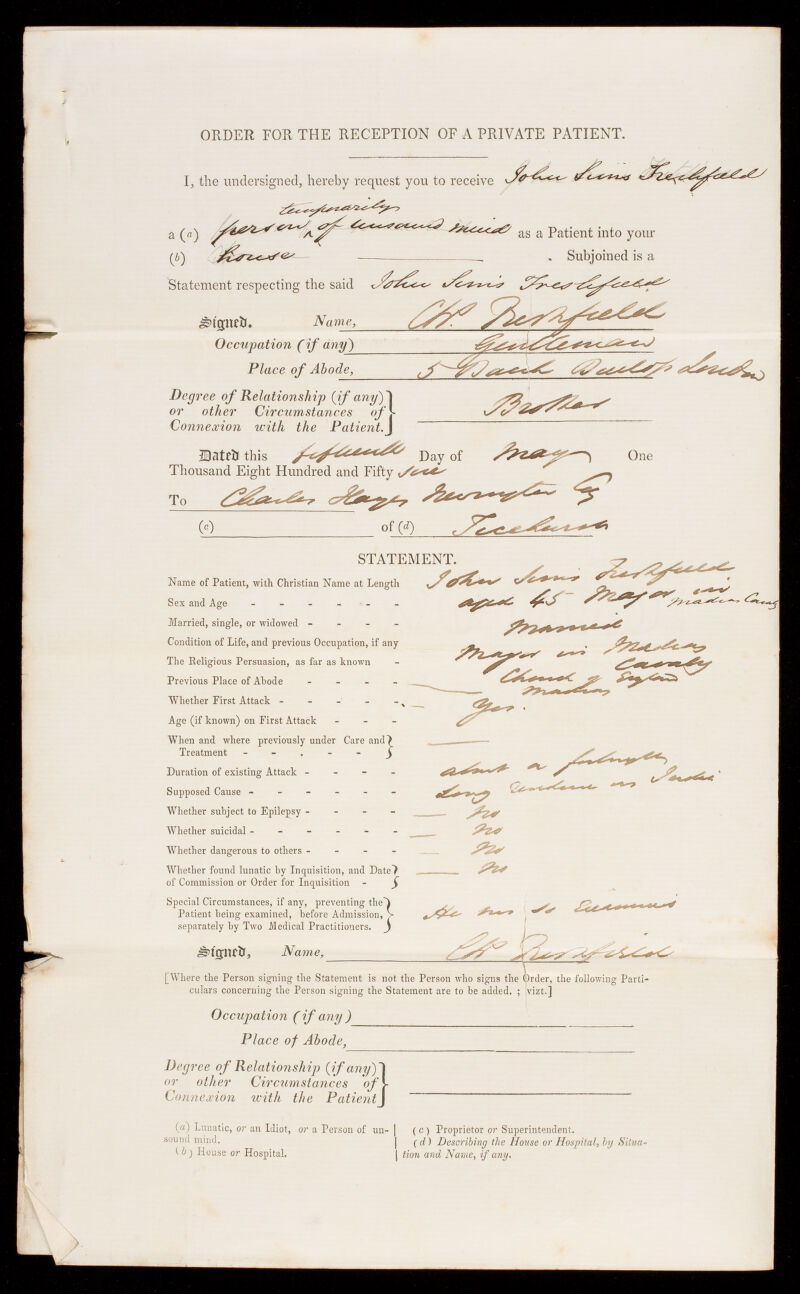 ORDER FOR THE RECEPTION OF A PRIVATE PATIENT.
I, the undersigned, hereby request you to receive John Sims Freshfield
temporarily
a (a) person ^ of unsound mind as a Patient into your
(b) house . Subjoined is a
Statement respecting the said John Sims Freshfield
Signed. Name, Freshfield
Occupation (if any) Gentleman
Place of Abode, 5 Bank London
Degree of Relationship (if any)
or other Circumstances of
Connexion with the Patient. Brother
Dated this fifteenth Day of May One
Thousand Eight Hundred and Fifty
To Charles Hayes Newington Esq
(c) of (d) Ticehurst
STATEMENT.
Name of Patient, with Christian Name at Length John Sims Freshfield
Sex and Age - - - - - - aged 45 Major in Madras Cavalry
Married, single, or widowed - - - - Married
Condition of Life, and previous Occupation, if any Major in Madras Cavalry
The Religious Persuasion, as far as known - Church of England
Previous Place of Abode - - - - Madras
Whether First Attack - - - - - Yes.
Age (if known) on First Attack - - -
When and where previously under Care and
Treatment - - - - -
Duration of existing Attack - - - - about a fortnight
Supposed Cause - - - - - - Long residence in India
Whether subject to Epilepsy - - - - No
Whether suicidal - - - - - - No
Whether dangerous to others - - - - No
Whether found lunatic by Inquisition, and Date
of Commission or Order for Inquisition - No
Special Circumstances, if any, preventing the
Patient being examined, before Admission,
separately by Two Medical Practitioners. He was so Examined
Signed, Name, Freshfield
[Where the Person signing the Statement is not the Person who signs the Order, the following Parti-
culars concerning the Person signing the Statement are to be added. ; vizt.]
Occupation (if any)
Place of Abode,
Degree of Relationship (if any)
or other Circumstances of
Connexion with the Patient
(a) Lunatic, or an Idiot, or a Person of un-
sound mind.
(b) House or Hospital.
(c) Proprietor or Superintendent.
(d) Describing the House or Hospital, by Situa-
tion and Name, if any.